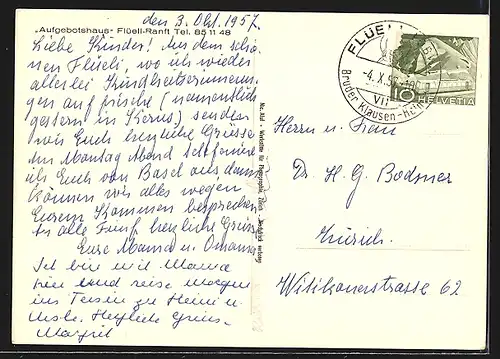 den 3. Okt. 1957.
„Aufgebotshaus- Flüeli-Ranft Tel. 85 11 48
Liebe Kinder! Aus dem schö-
nen Flüeli, wo ich wieder
allerlei Kindheitserinnerun-
gen auffrische (namentlich
gestern in Kerns), senden
wir Euch herzliche Grüsse.
Am Montag Abend telefoniere
ich Euch von Basel aus, dann
können wir alles wegen
Eurem Kommen besprechen.
An alle Fünf herzliche Grüsse
Eure Mama u. Omama
Ich bin mit Mama
hier und reise morgen
ins Tessin zu Heini u.
Herzliche Grüsse
Margrit
FLÜELI
-4. X. 57
VII
Bruder-Klausen-
10 HELVETIA
Herrn u. Frau
Dr. H. G. Bodmer
Zürich.
Witikonerstrasse 62